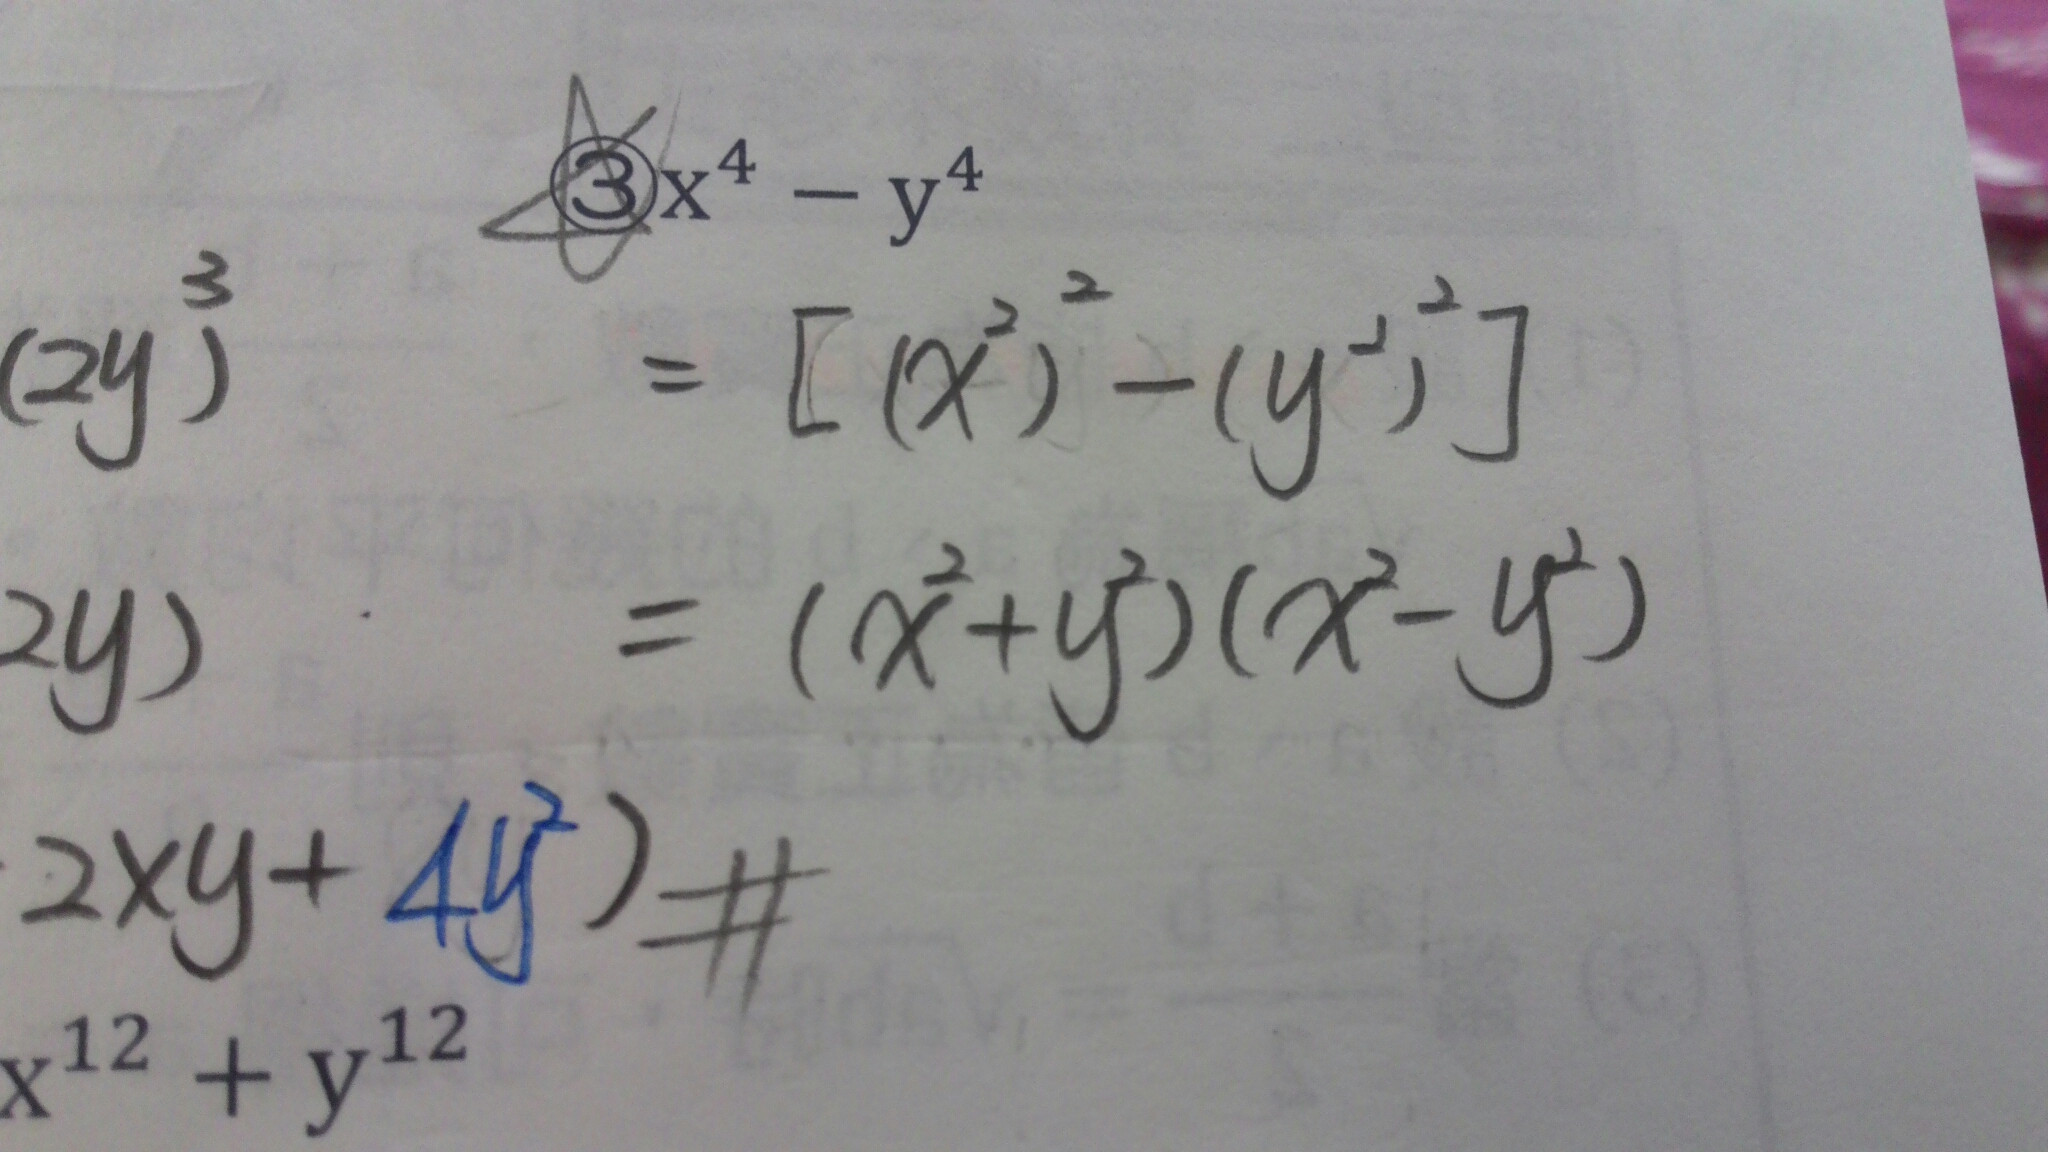 ③x⁴ − y⁴
(2y)³ = [(x²)² − (y²)²]
2y) = (x²+y²)(x²−y²)
2xy+4y²)#
x¹² + y¹²